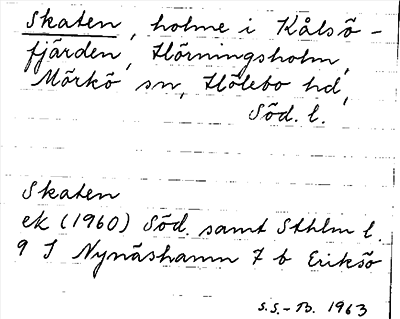 Skaten, holme i Kålsö-
fjärden, Hörningsholm,
Mörkö sn, Hölebo hd,
Söd. l.
Skaten
ek (1960) Söd. samt Sthlm l.
9 I Nynäshamn 7 b Eriksö
S.S.-B. 1963